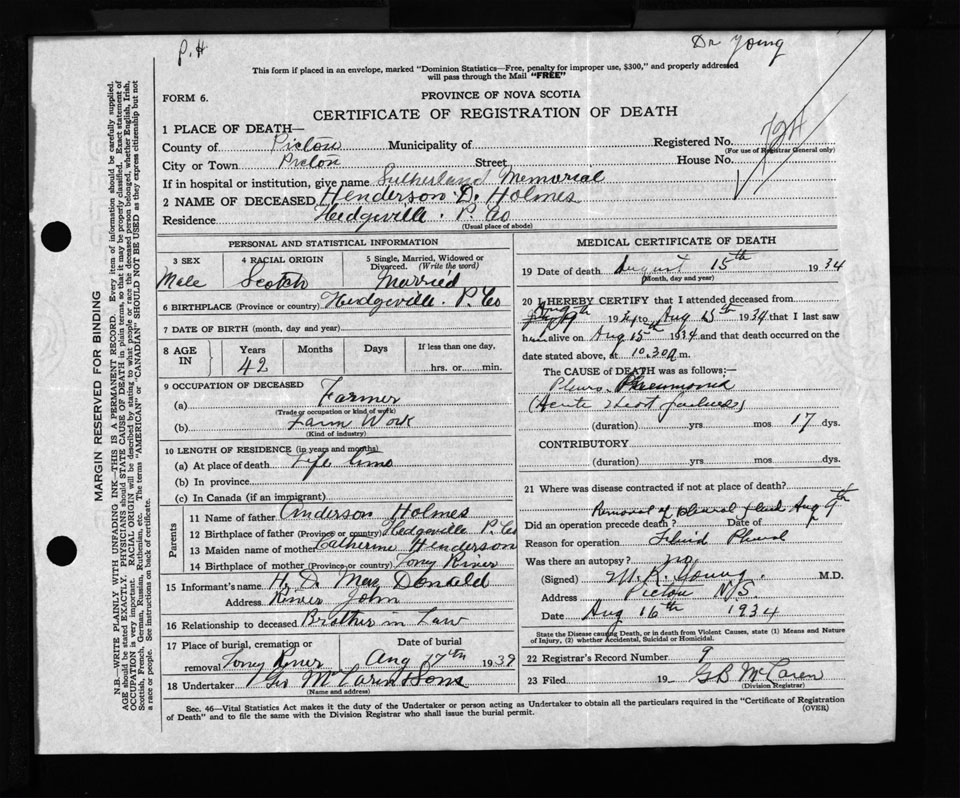 P. H
Dr Young
This form if placed in an envelope, marked "Dominion Statistics—Free, penalty for improper use, $300," and properly addressed
will pass through the Mail "FREE"
FORM 6.
PROVINCE OF NOVA SCOTIA
CERTIFICATE OF REGISTRATION OF DEATH
1 PLACE OF DEATH—
County of Pictou Municipality of Registered No.
(For use of Registrar General only)
City or Town Pictou Street House No.
If in hospital or institution, give name Sutherland Memorial
2 NAME OF DECEASED Henderson D. Holmes
Residence Hedgeville. P. Co
(Usual place of abode)
PERSONAL AND STATISTICAL INFORMATION
3 SEX 4 RACIAL ORIGIN 5 Single, Married, Widowed or
Divorced. (Write the word)
Male Scotch Married
6 BIRTHPLACE (Province or country) Hedgeville. P. Co
7 DATE OF BIRTH (month, day and year)
8 AGE IN Years Months Days If less than one day,
42 hrs. or min.
9 OCCUPATION OF DECEASED
(a) Farmer
(Trade or occupation or kind of work)
(b) Farm Work
(Kind of industry)
10 LENGTH OF RESIDENCE (in years and months)
(a) At place of death Life time
(b) In province
(c) In Canada (if an immigrant)
Parents
11 Name of father Anderson Holmes
12 Birthplace of father (Province or country) Hedgeville P. Co
13 Maiden name of mother Catherine Henderson
14 Birthplace of mother (Province or country) Tony River
15 Informant's name H. D. Mac Donald
Address River John
16 Relationship to deceased Brother in Law
17 Place of burial, cremation or Date of burial
removal Tony River Aug 17th 1939
18 Undertaker McLaren & Sons
(Name and address)
MEDICAL CERTIFICATE OF DEATH
19 Date of death August 15th 1934
(Month, day and year)
20 I HEREBY CERTIFY that I attended deceased from
Aug 9th 19 to Aug 15th 1934 that I last saw
him alive on Aug 15th 1934 and that death occurred on the
date stated above, at 10.30 m.
The CAUSE of DEATH was as follows:
Pleuro Pneumonia
(Acute Heart failure)
(duration) yrs mos 17 dys.
CONTRIBUTORY
(duration) yrs. mos. dys.
21 Where was disease contracted if not at place of death?
Removal of pleural fluid Aug 9th
Did an operation precede death? Date of
Reason for operation Fluid Pleural
Was there an autopsy? no
(Signed) M. R. Young. M.D.
Address Pictou N/S.
Date Aug 16th 1934
State the Disease causing Death, or in death from Violent Causes, state (1) Means and Nature
of Injury, (2) whether Accidental, Suicidal or Homicidal.
22 Registrar's Record Number 9
23 Filed 19 GB McLaren
(Division Registrar)
Sec. 46—Vital Statistics Act makes it the duty of the Undertaker or person acting as Undertaker to obtain all the particulars required in the "Certificate of Registration
of Death" and to file the same with the Division Registrar who shall issue the burial permit.
(OVER)
MARGIN RESERVED FOR BINDING
N.B.—WRITE PLAINLY WITH UNFADING INK—THIS IS A PERMANENT RECORD. Every item of information should be carefully supplied.
AGE should be stated EXACTLY. PHYSICIANS should STATE CAUSE OF DEATH in plain terms, so that it may be properly classified. Exact statement of
OCCUPATION is very important. RACIAL ORIGIN will be described by stating to what people or race the deceased person belonged, whether English, Irish,
Scottish, French, German, Russian, Ruthenian, etc. The terms "AMERICAN" or "CANADIAN" SHOULD NOT BE USED as they express citizenship but not
a race or people. See instructions on back of certificate.